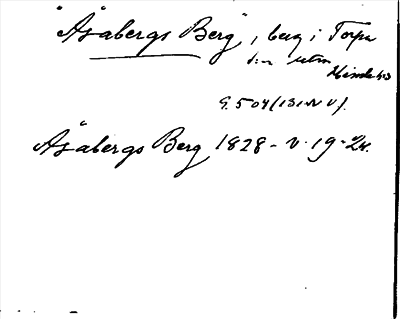 "Åsabergs Berg", berg i Torpa
s:n utm
Himle hd
G. 504 (131 N V).
Åsabergs Berg 1828 - V. 19 - 24.